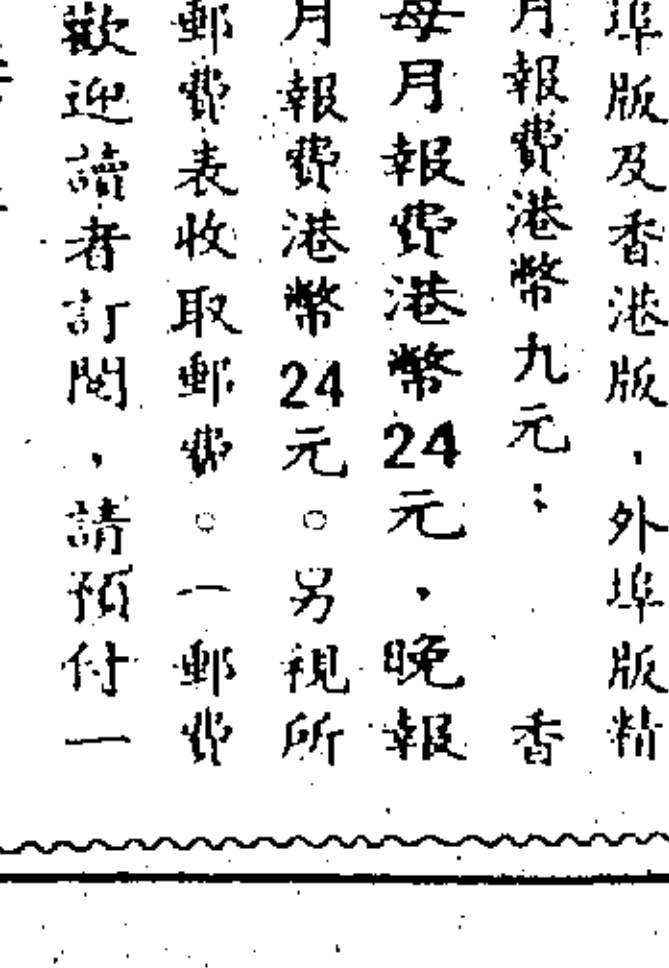 埠版及香港版，外埠版精
月報費港幣九元；　香
每月報費港幣24元，晚報
月報費港幣24元。另視所
郵費表收取郵費。一郵費
歡迎讀者訂閱，請預付一